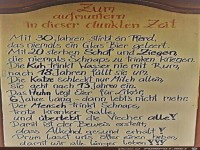 Zum
aufmuntern
in dieser dunklen Zeit
Mit 30 Jahren stirbt ein Pferd,
das niemals ein Glas Bier geleert.
Mit 20 sterben Schaf und Ziegen,
die niemals Schnaps zu trinken kriegen.
Die Kuh trinkt Wasser nie mit Rum,
nach 18 Jahren fällt sie um.
Die Katze schleckt nur Milch allein,
sie geht nach 13 Jahren ein.
Das Huhn legt Eier für
6 Jahre lang - dann lebts nicht mehr
Der Mensch trinkt Schnaps,
und überlebt die Viecher alle!
Damit ist der Beweis
dass Alkohol gesund erhält!
Darum lasst uns
damit wir alle länger leben!!!